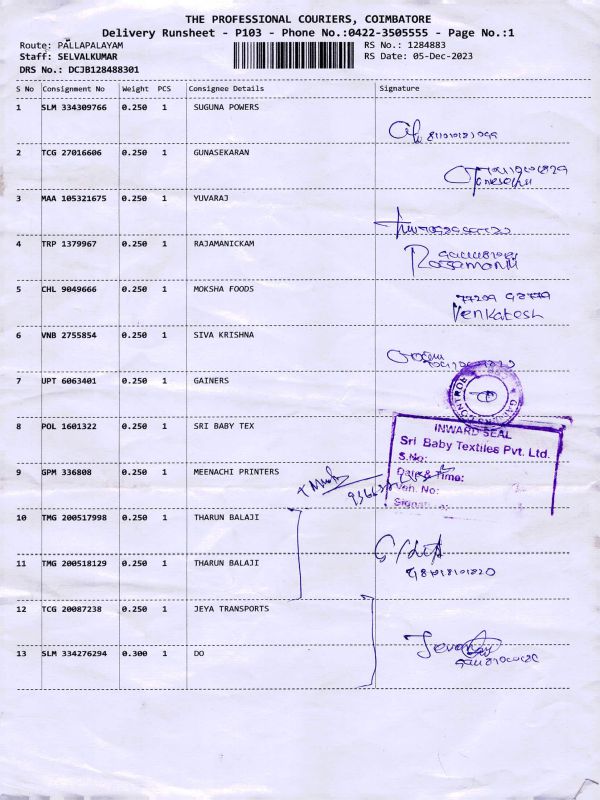 THE PROFESSIONAL COURIERS, COIMBATORE
Delivery Runsheet - P103 - Phone No.:0422-3505555 - Page No.:1
Route: PALLAPALAYAM RS No.: 1284883
Staff: SELVALKUMAR RS Date: 05-Dec-2023
DRS No.: DCJB128488301
S No Consignment No Weight PCS Consignee Details Signature
1 SLM 334309766 0.250 1 SUGUNA POWERS
2 TCG 27016606 0.250 1 GUNASEKARAN
3 MAA 105321675 0.250 1 YUVARAJ
4 TRP 1379967 0.250 1 RAJAMANICKAM
5 CHL 9049666 0.250 1 MOKSHA FOODS
Venkatesh
6 VNB 2755854 0.250 1 SIVA KRISHNA
7 UPT 6063401 0.250 1 GAINERS
8 POL 1601322 0.250 1 SRI BABY TEX
INWARD SEAL
Sri Baby Textiles Pvt. Ltd.
S.No:
Date & Time:
Veh. No:
9 GPM 336808 0.250 1 MEENACHI PRINTERS
10 TMG 200517998 0.250 1 THARUN BALAJI
11 TMG 200518129 0.250 1 THARUN BALAJI
12 TCG 20087238 0.250 1 JEYA TRANSPORTS
13 SLM 334276294 0.300 1 DO